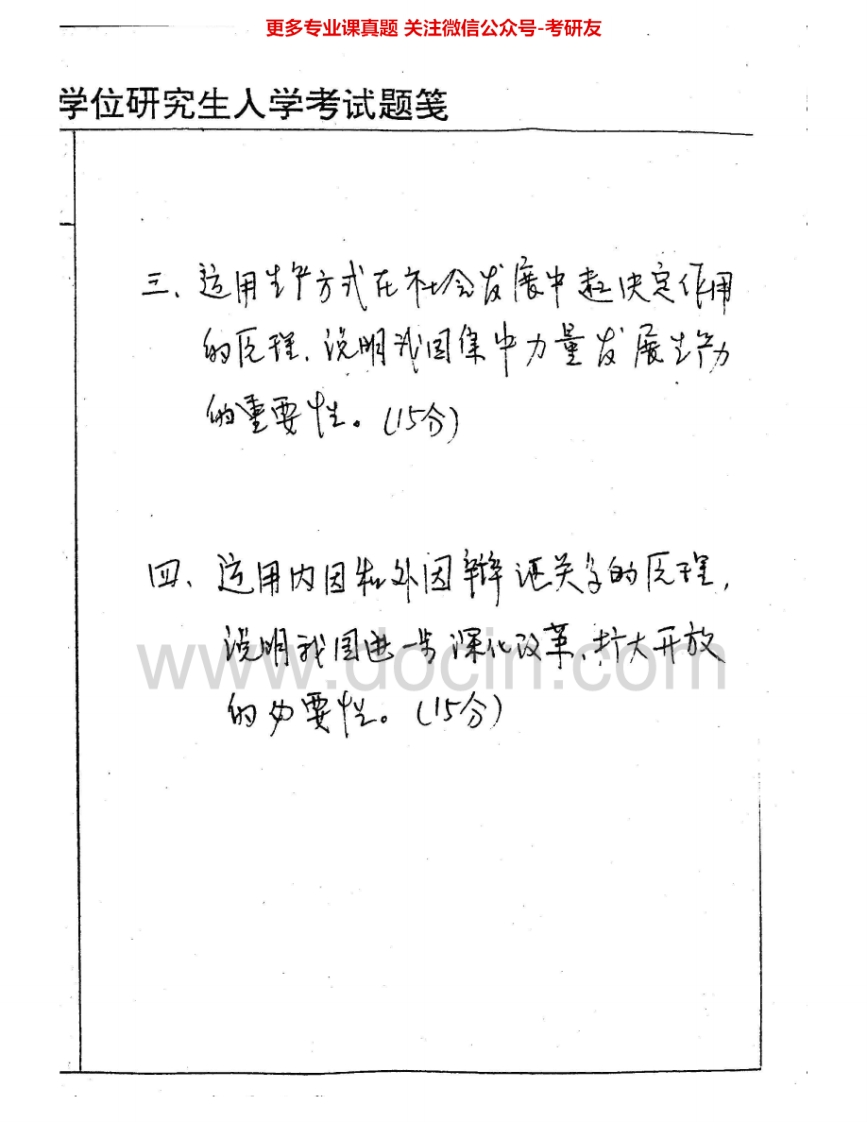 更多专业课真题 关注微信公众号-考研友
学位研究生入学考试题笺
三、运用生产方式在社会发展中起决定作用
的原理，说明我国集中力量发展生产力
的重要性。(15分)
四、运用内因和外因辩证关系的原理，
说明我国进一步深化改革、扩大开放
www.docin.com
的必要性。(15分)